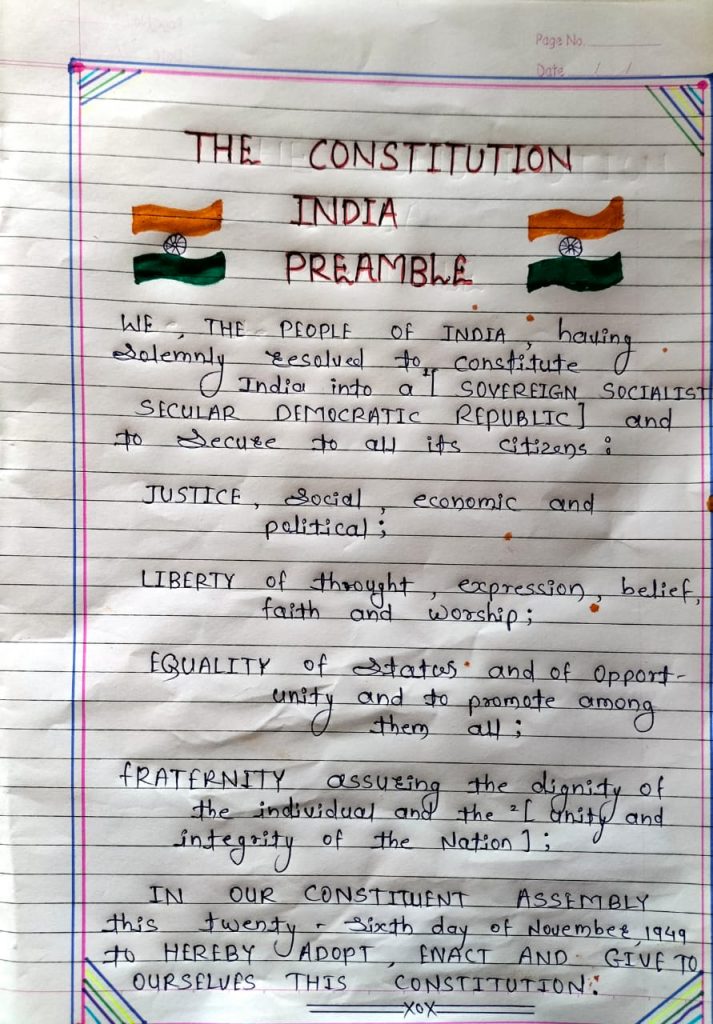 Page No.
Date / /
THE CONSTITUTION
INDIA
PREAMBLE
WE, THE PEOPLE OF INDIA, having
solemnly resolved to constitute
India into a ¹[ SOVEREIGN SOCIALIST
SECULAR DEMOCRATIC REPUBLIC] and
to secure to all its citizens :
JUSTICE, social, economic and
political ;
LIBERTY of throught, expression, belief,
faith and worship ;
EQUALITY of status and of opport-
unity and to promote among
them all ;
fRATERNITY assuring the dignity of
the individual and the ²[ unity and
integrity of the Nation ] ;
IN OUR CONSTITUENT ASSEMBLY
this twenty - sixth day of November, 1949
to HEREBY ADOPT, ENACT AND GIVE TO
OURSELVES THIS CONSTITUTION.
XOX